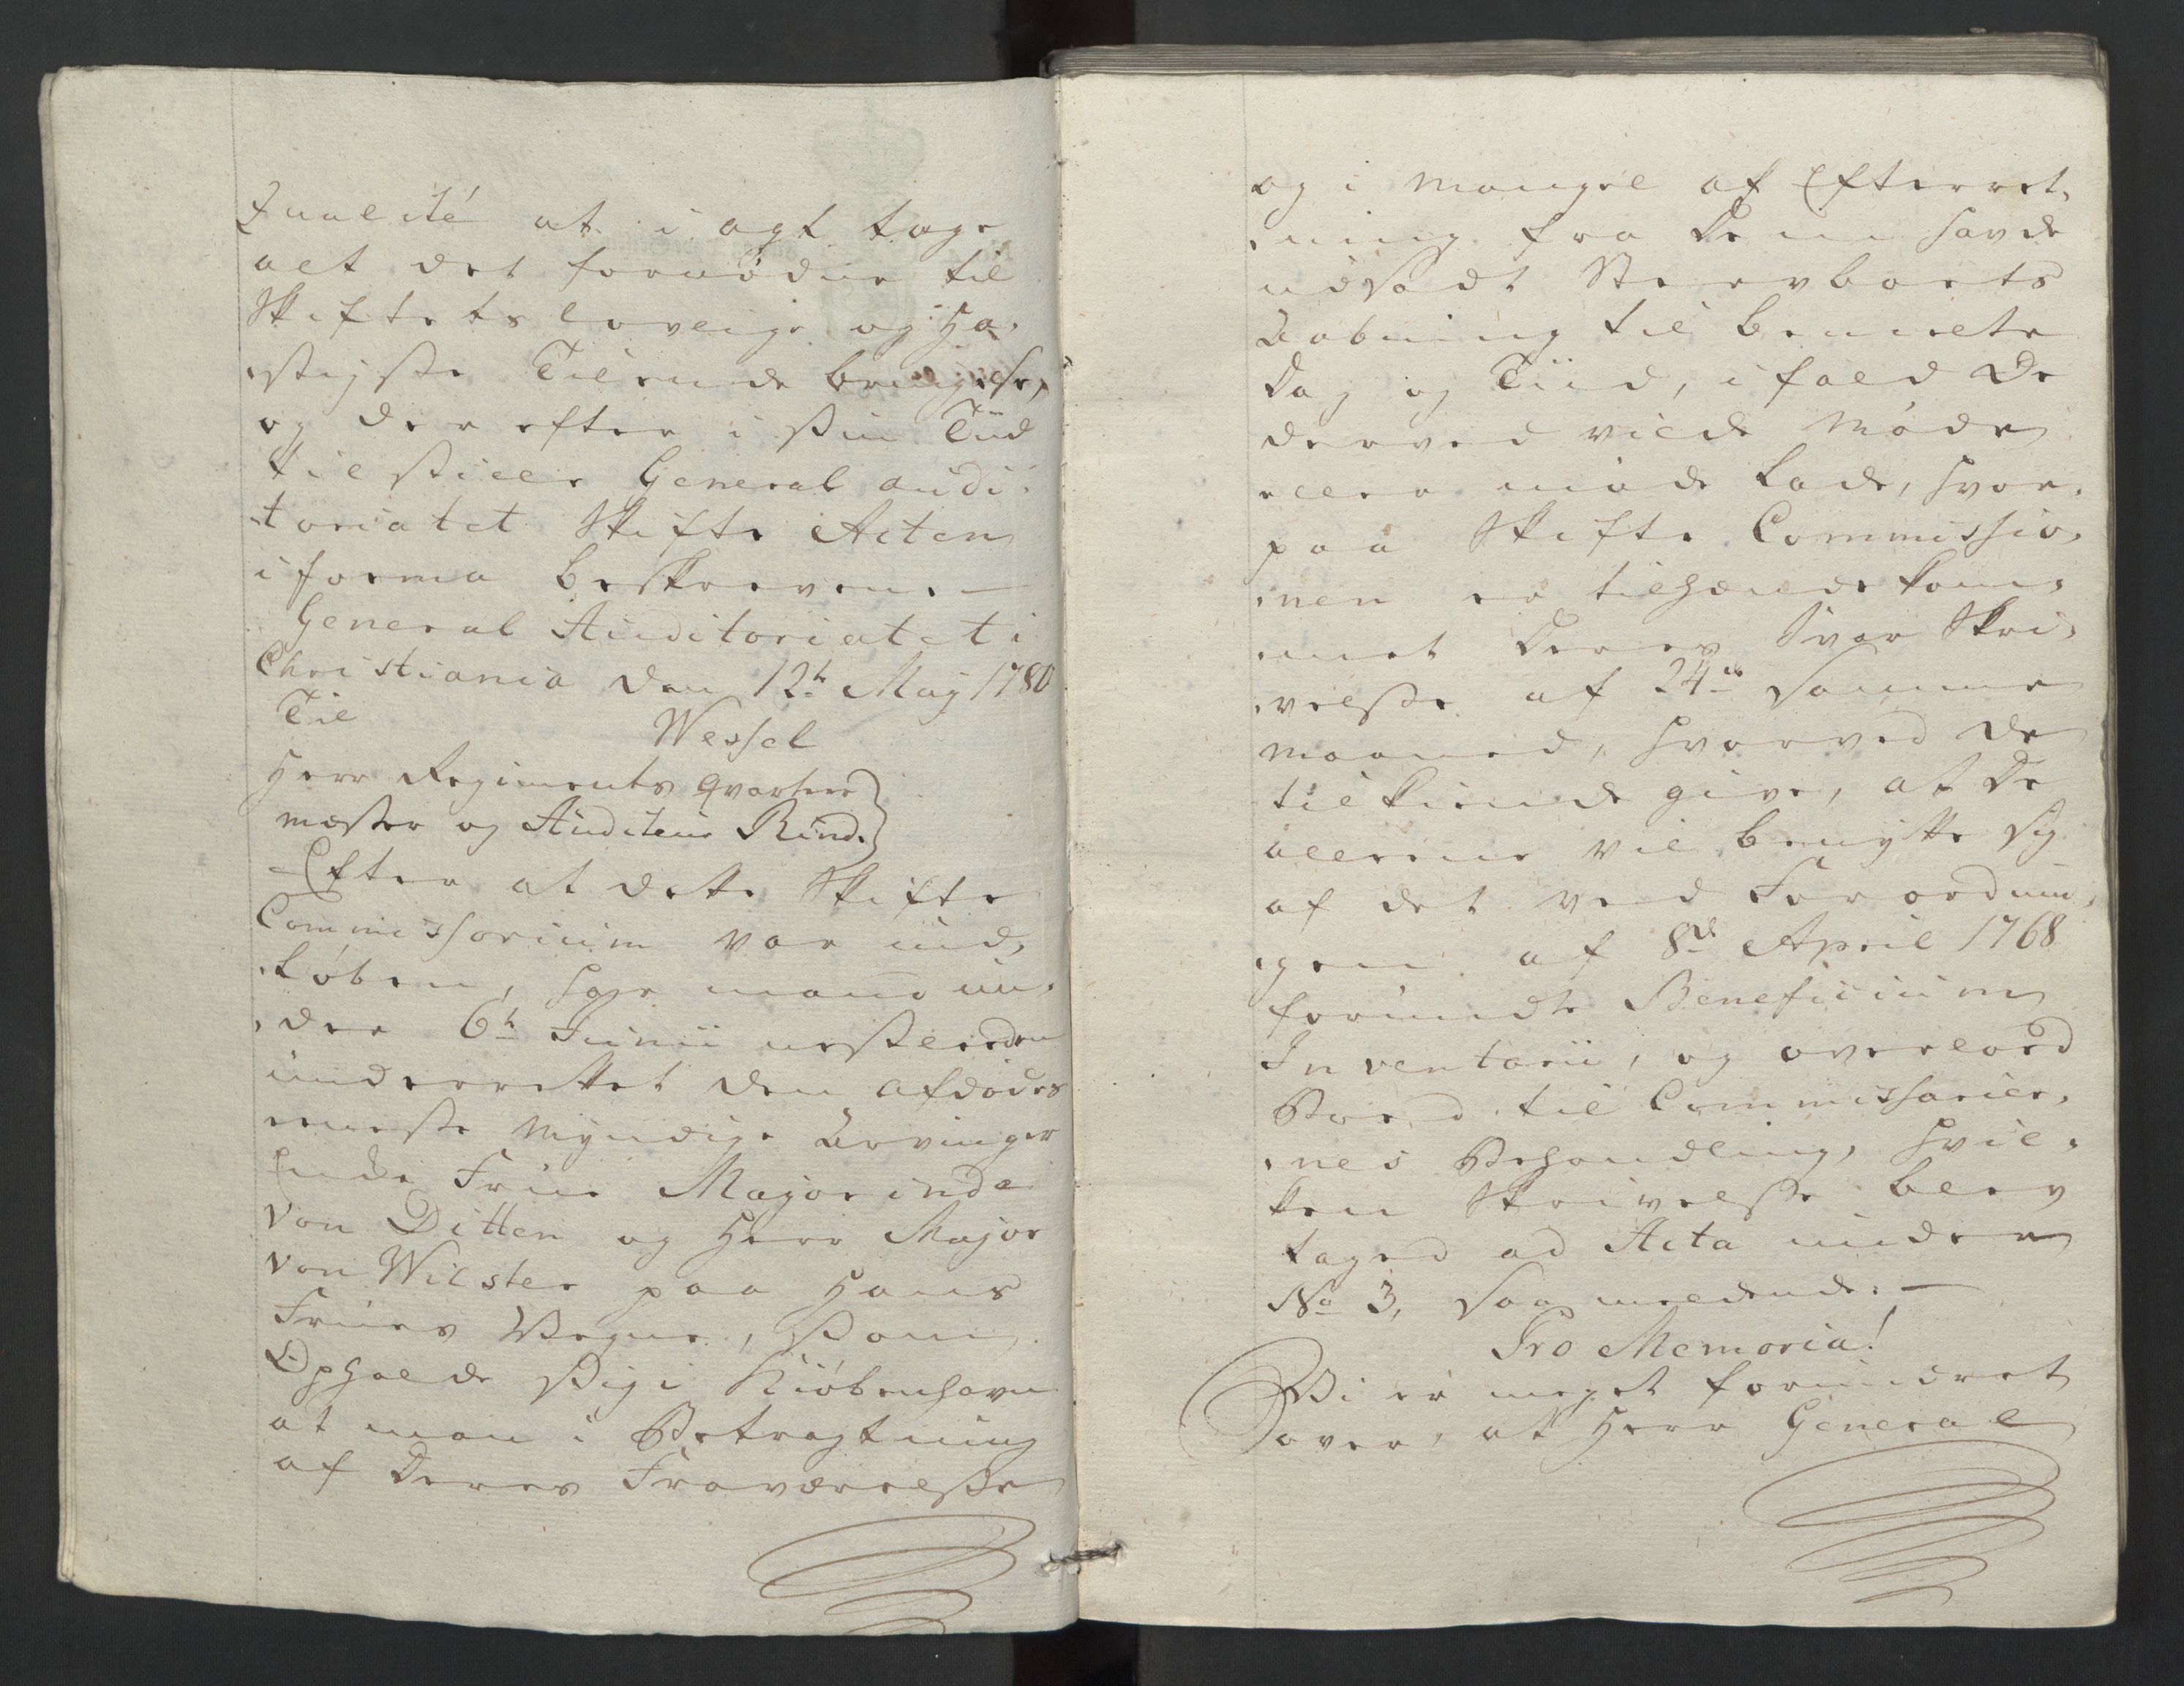 qualité at i agt tage
alt det fornødne til
Skiftets lovlige og ha-
-stigste Tilendebringelse,
og der efter i sin Tiid
tilstille General Audi-
-toriatet Skifte Acten
i forma beskreven. —
General Auditoriatet i
Christiania den 12te May 1780
Til
Wessel
Herr Regiments Qvarteer
mester og Auditeur Rind.
Efter at dette Skifte
Commissorium var ind-
-løben, har man un-
-der 6te Junii nestleeden
underrettet den afdødes
eeneste Myndige Arvinger
Frue Majorinde
von Ditten og Herr Major
von Wilster paa Hans
Frues Vegne, som
Opholde sig i Kiøbenhavn
at man i Betragtning
af Deres Fraværelse
og i Mangel af Efterret-
-ning fra Dem havde
udsadt Sterboets
Aabning til bemelte
Dag og Tiid, i fald De
derved vilde Møde
eller møde lade, hvor-
paa Skifte Commissio-
-nen er tilhændekom-
-met Deres Svar Skri-
-velse af 24de samme
Maaned, hvorved De
tilkiende give, at De
alleene vil benytte sig
af det ved Forordnin-
-gen af 8de April 1768
forundte Beneficium
Inventarii, og overlod
Boed til Commissarier-
-nes Behandling, hvil-
ken Skrivelse blev
taged ad Acta under
No 3, saa meldende: —
Pro Memoria!
Vi er meget forundret
over, at Herr General